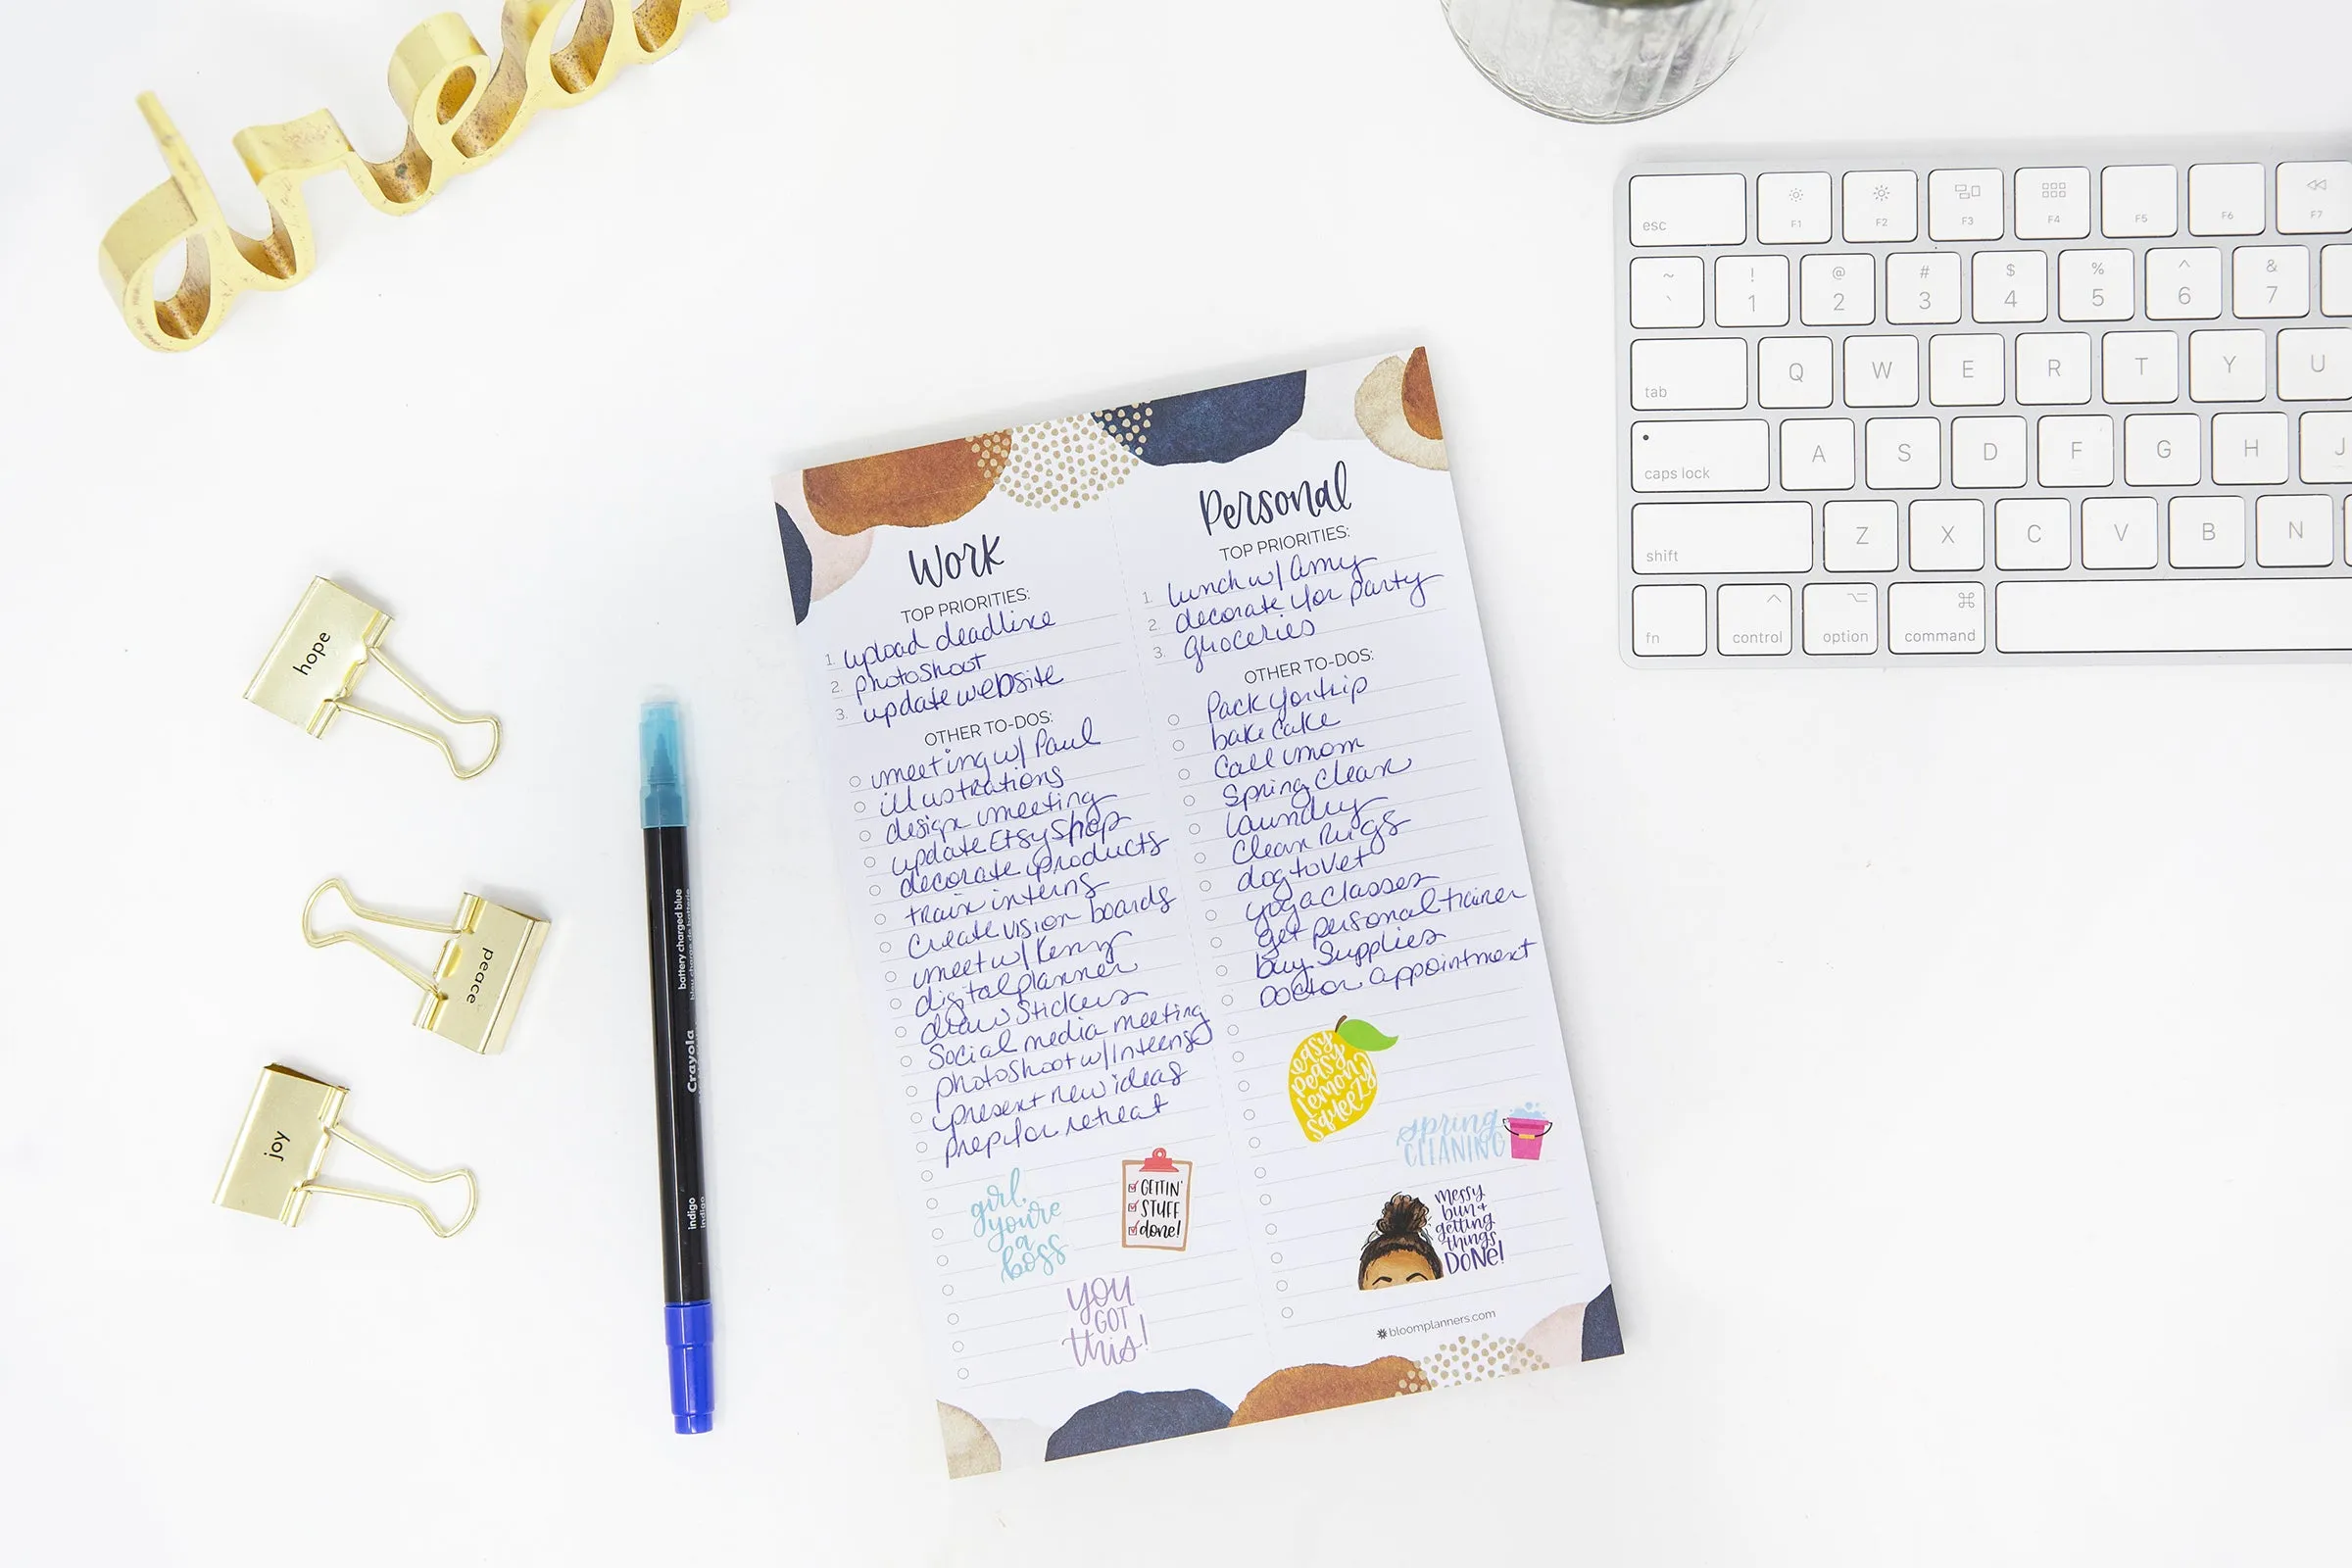 drea
hope
peace
joy
battery charged blue
bleu chargé de batterie
Crayola
indigo
indigo
Work
TOP PRIORITIES:
1. upload deadline
2. photoshoot
3. update website
OTHER TO-DOS:
meeting w/ Paul
illustrations
design meeting
update Etsy shop
decorate products
train interns
create vision boards
meet w/ Kenny
digital planner
draw stickers
Social media meeting
photoshoot w/ Interns
present new ideas
prep for retreat
girl,
you're
a
boss
GETTIN'
STUFF
done!
you
GOT
this!
Personal
TOP PRIORITIES:
1. lunch w/ Amy
2. decorate for party
3. groceries
OTHER TO-DOS:
Pack for trip
bake cake
Call mom
Spring Clean
Laundry
Clean Rugs
dog to vet
yoga classes
get personal trainer
buy supplies
Doctor appointment
easy
peasy
lemon
squeezy
spring
CLEANING
messy
bun +
getting
things
DONE!
bloomplanners.com
esc F1 F2 F3 F4 F5 F6 F7
~ ! @ # $ % ^ &
` 1 2 3 4 5 6 7
tab Q W E R T Y U
caps lock A S D F G H J
shift Z X C V B N
fn control option command